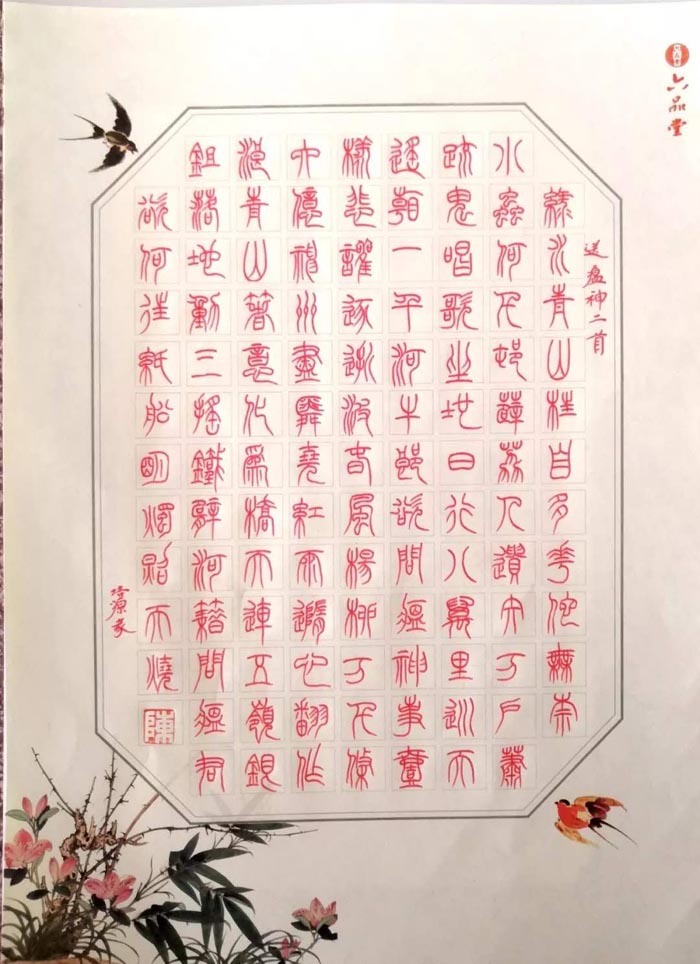 六品堂
送瘟神二首
綠水青山枉自多華佗無奈
小蟲何千邨薜荔人遺矢万戶蕭
疏鬼唱歌坐地日行八萬里巡天
遙看一千河牛郎欲問瘟神事壹
樣悲歡逐逝波春風楊柳万千條
六億神州盡舜堯紅雨隨心翻作
浪青山著意化為橋天連五嶺銀
鉏落地動三搖鐵臂河藉問瘟君
欲何往紙船明燭照天燒
源篆
陳